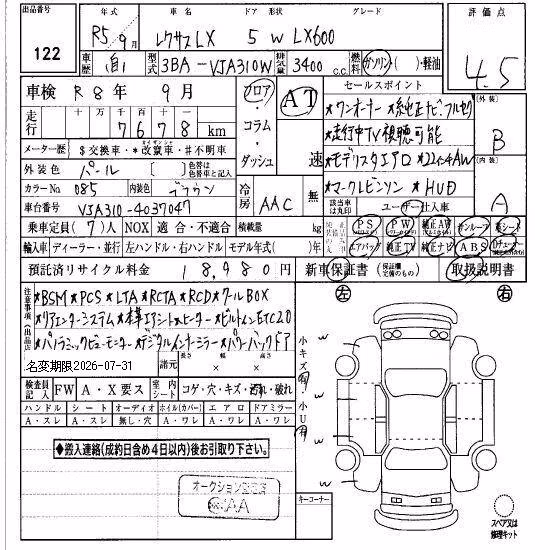 出品番号 年式 車名 ドア 形状 グレード 評価点
122 R5年9月 レクサスLX 5 W LX600 4.5
車歴 自 型式 3BA-VJA310W 排気量 3400 c.c. 燃料 ガソリン・軽油
車検 R8年 9月
走行 十万 万 千 百 十 一
7 6 7 8 km
メーター歴 $交換車・*改竄車・#不明車
外装色 パール 色替は色替車と記入
カラーNo 085 内装色 ブラウン
車台番号 VJA310-4037047
フロア・コラム・ダッシュ
AT 速
冷房 AAC 無
セールスポイント
★ワンオーナー ★純正ナビ.フルセグ
★走行中TV視聴可能
★モデリスタエアロ ★22インチAW
★マークレビンソン ★HUD
外装 B
内装 A
該当車は丸印 ユーザー仕入車
乗車定員(7)人 NOX 適合・不適合 積載量 kg
PS PW 純正AW サンルーフ 革シート
輸入車 ディーラー・並行 左ハンドル・右ハンドル モデル年式( )年
エアバッグ 純正TV 純正ナビ ABS
預託済リサイクル料金 18,980円 新車保証書 保証書(定検のもの) 取扱説明書
注意事項(出品店)
★BSM ★PCS ★LTA ★RCTA ★RCD ★クールBOX
★リアエンターシステム ★本革エアシート・ヒーター ★ビルトインETC2.0
★パノラミックビューモニター ★デジタルインナーミラー ★パワーバックドア
名変期限2026-07-31 諸元 長さ 幅 高さ × ×
検査員記入 FW A・X要ス 室内シート コゲ・穴・キズ・汚れ・破れ
ハンドル シート オーディオ ホイル(カバー) エアロ ドアミラー
A・スレ A・スレ 無し・穴 A・ワレ A・ワレ A・ワレ
◆搬入連絡(成約日含め4日以内)後お引取り下さい。
左 右
小キズ有・小U有
w
w
w
w
キーコーナー
スペア又は修理キット